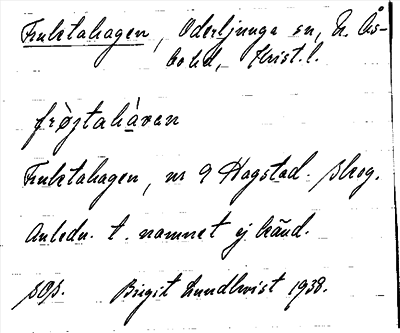 Fruktahagen, Oderljunga sn, N. Ås-
bo hd, Krist. l.
frø̀ztahàvan
Fruktahagen, nr 9 Hagstad. Skog.
Anledn. t. namnet ej känd.
Birgit Lundkvist 1938.